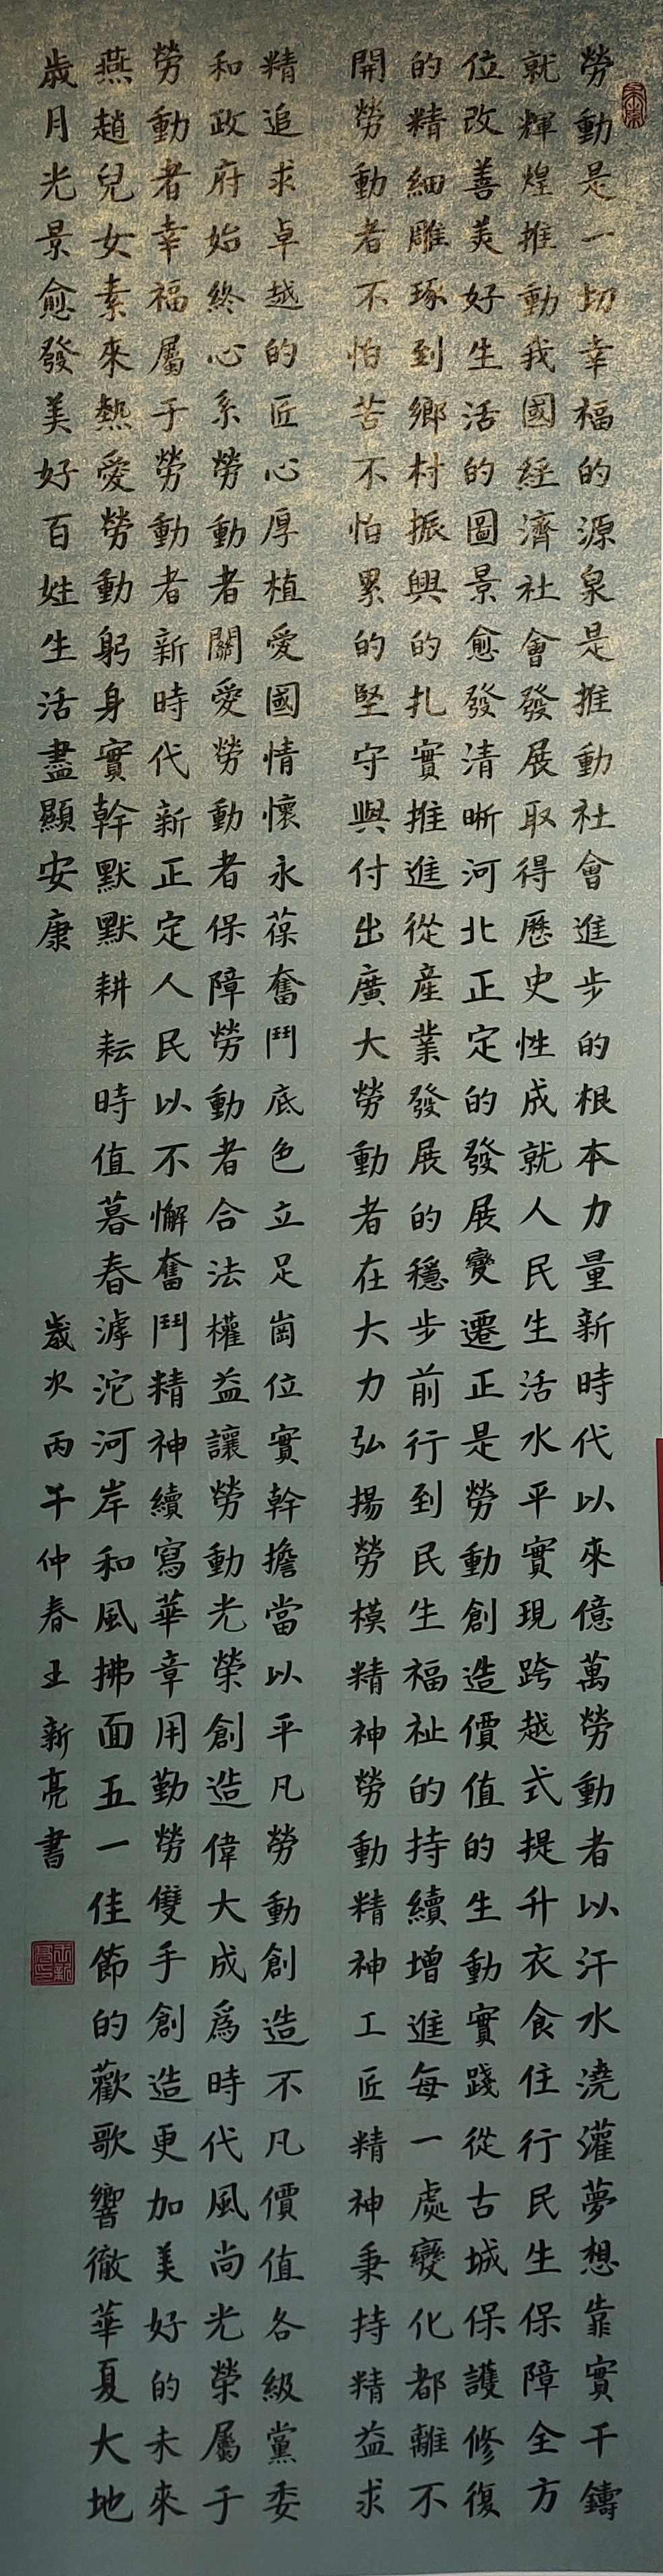 勞動是一切幸福的源泉是推動社會進步的根本力量新時代以來億萬勞動者以汗水澆灌夢想靠實干鑄
就輝煌推動我國經濟社會發展取得歷史性成就人民生活水平實現跨越式提升衣食住行民生保障全方
位改善美好生活的圖景愈發清晰河北正定的發展變遷正是勞動創造價值的生動實踐從古城保護修復
的精細雕琢到鄉村振興的扎實推進從産業發展的穩步前行到民生福祉的持續增進每一處變化都離不
開勞動者不怕苦不怕累的堅守與付出廣大勞動者在大力弘揚勞模精神勞動精神工匠精神秉持精益求
精追求卓越的匠心厚植愛國情懷永葆奮鬥底色立足崗位實幹擔當以平凡勞動創造不凡價值各級黨委
和政府始終心系勞動者關愛勞動者保障勞動者合法權益讓勞動光榮創造偉大成爲時代風尚光榮屬于
勞動者幸福屬于勞動者新時代新正定人民以不懈奮鬥精神續寫華章用勤勞雙手創造更加美好的未來
燕趙兒女素來熱愛勞動躬身實幹默默耕耘時值暮春滹沱河岸和風拂面五一佳節的歡歌響徹華夏大地
歲月光景愈發美好百姓生活盡顯安康
歲次丙午仲春王新亮書